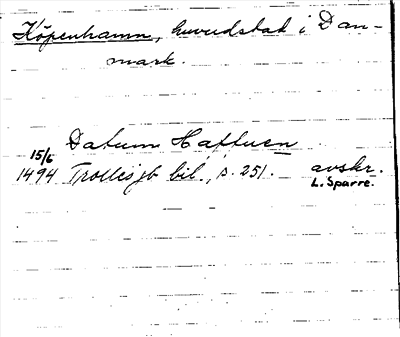 Köpenhamn, huvudstad i Dan-
mark.
Datum Haffnen
15/6
1494 Trollesjb bil., s. 251. avskr.
L. Sparre.